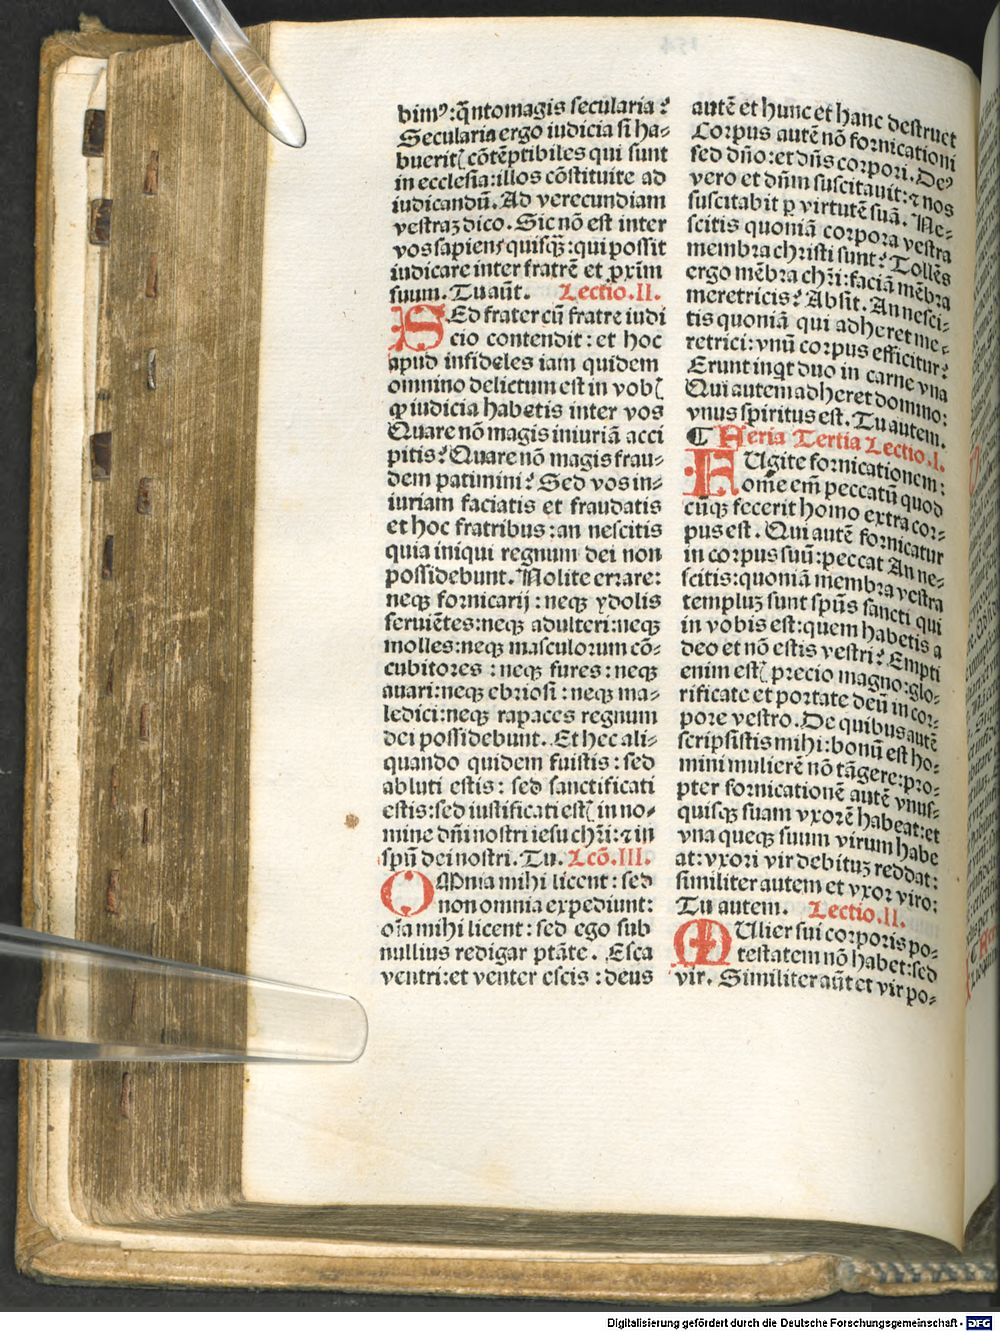 bimꝰ: q̄ntomagis secularia?
Secularia ergo iudicia si ha⸗
buerit(cōtēptibiles qui sunt
in ecclesia: illos cōstituite ad
iudicandū. Ad verecundiam
vestraꝫ dico. Sic nō est inter
vos sapiens quisq̄: qui possit
iudicare inter fratrē et ꝓxim̄
suum. Tu aūt. Lectio. II.
SEd frater cū fratre iudi
cio contendit: et hoc
apud infideles iam quidem
omnino delictum est in vob(
ꝙ iudicia habetis inter vos
Quare nō magis iniuriā acci
pitis? Quare nō magis frau⸗
dem patimini? Sed vos in⸗
iuriam faciatis et fraudatis
et hoc fratribus: an nescitis
quia iniqui regnum dei non
possidebunt. Nolite errare:
neqꝫ fornicarij: neqꝫ ydolis
seruiētes: neqꝫ adulteri: neqꝫ
molles: neqꝫ masculorum cō⸗
cubitores: neqꝫ fures: neqꝫ
auari: neqꝫ ebriosi: neqꝫ ma⸗
ledici: neqꝫ rapaces regnum
dei possidebunt. Et hec ali⸗
quando quidem fuistis: sed
abluti estis: sed sanctificati
estis: sed iustificati est( in no⸗
mine dn̄i nostri iesu chr̄i: ⁊ in
spū dei nostri. Tu. Lcō. III.
OMnia mihi licent: sed
non omnia expediunt:
oīa mihi licent: sed ego sub
nullius redigar ptāte. Esca
ventri: et venter escis: deus
autē et hunc et hanc destruct
Corpus autē nō fornicationi
sed dn̄o: et dn̄s corpori. Deꝰ
vero et dn̄m suscitauit: ⁊ nos
suscitabit ꝑ virtutē suā. Ne⸗
scitis quoniā corpora vestra
membra christi sunt? Tollēs
ergo mēbra chr̄i: faciā mēbra
meretricis? Absit. An nesci⸗
tis quoniā qui adheret me⸗
retrici: vnū corpus efficitur?
Erunt inqt duo in carne vna
Qui autem adheret domino:
vnus spiritus est. Tu autem.
¶ Feria Tertia Lectio. I.
FUgite fornicationem:
ome em̄ peccatū quod
cūqꝫ fecerit homo extra cor⸗
pus est. Qui autē fornicatur
in corpus suū: peccat An ne⸗
scitis: quoniā membra vestra
templuꝫ sunt spūs sancti qui
in vobis est: quem habetis a
deo et nō estis vestri? Empti
enim est( precio magno: glo⸗
rificate et portate deū in cor⸗
pore vestro. De quibus autē
scripsistis mihi: bonū est ho⸗
mini mulierē nō tāgere: pro⸗
pter fornicationē autē vnus⸗
quisqꝫ suam vxorē habeat: et
vna queqꝫ suum virum habe
at: vxori vir debituꝫ reddat:
similiter autem et vxor viro:
Tu autem. Lectio. II.
MUlier sui corporis po⸗
testatem nō habet: sed
vir. Similiter aūt et vir po⸗
Digitalisierung gefördert durch die Deutsche Forschungsgemeinschaft - DFG